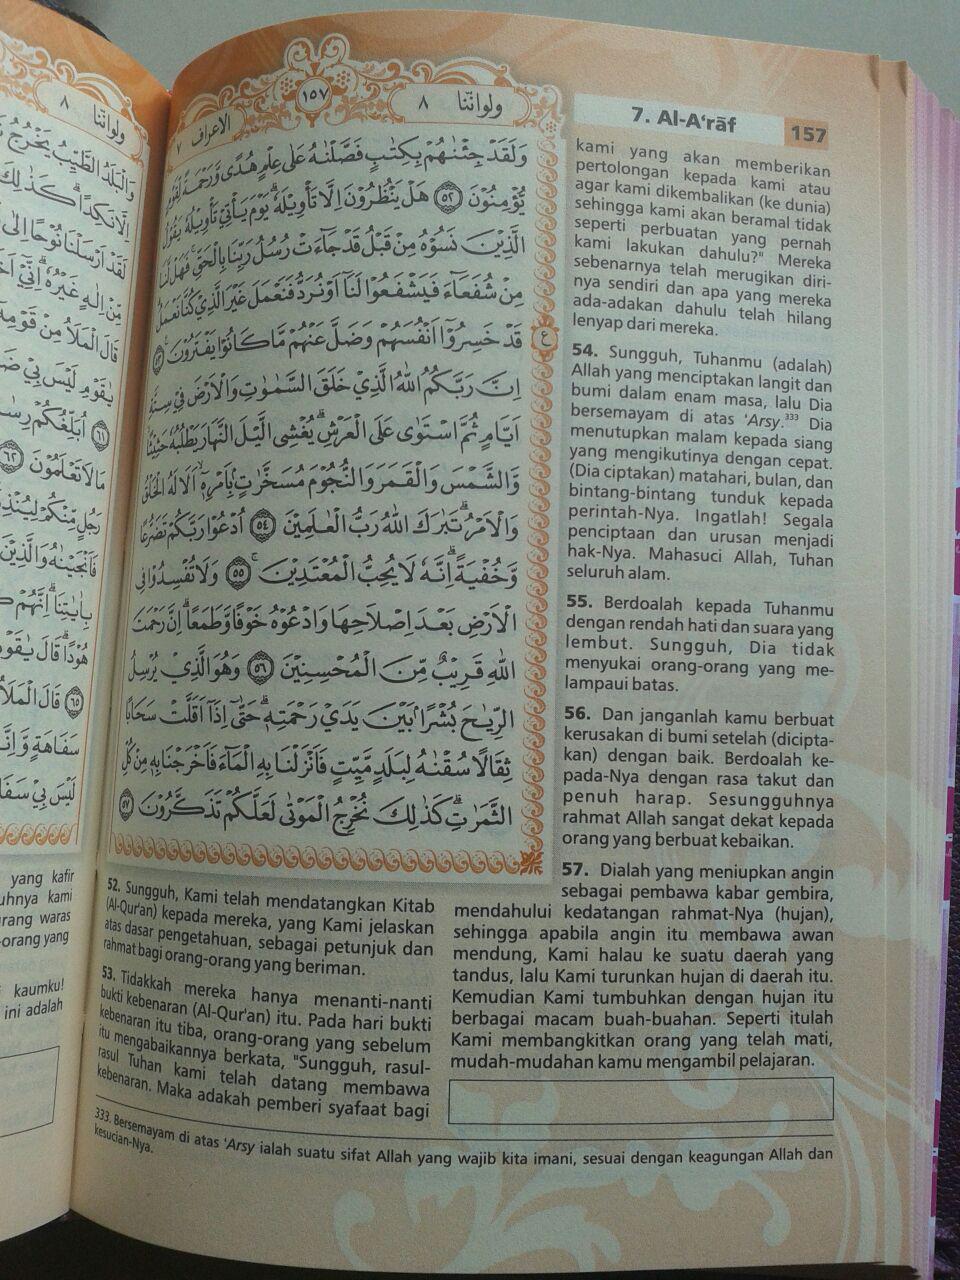 ولواننا ٨
١٥٧
الاعراف ٧
ولواننا ٨
7. Al-A‘rāf
157
وَلَقَدْ جِئْنٰهُمْ بِكِتٰبٍ فَصَّلْنٰهُ عَلٰى عِلْمٍ هُدًى وَّرَحْمَةً لِّقَوْمٍ
يُّؤْمِنُوْنَ ﴿٥٢﴾ هَلْ يَنْظُرُوْنَ اِلَّا تَأْوِيْلَهٗۗ يَوْمَ يَأْتِيْ تَأْوِيْلُهٗ يَقُوْلُ
الَّذِيْنَ نَسُوْهُ مِنْ قَبْلُ قَدْ جَاۤءَتْ رُسُلُ رَبِّنَا بِالْحَقِّۚ فَهَلْ لَّنَا
مِنْ شُفَعَاۤءَ فَيَشْفَعُوْا لَنَآ اَوْ نُرَدُّ فَنَعْمَلَ غَيْرَ الَّذِيْ كُنَّا نَعْمَلُۗ
قَدْ خَسِرُوْٓا اَنْفُسَهُمْ وَضَلَّ عَنْهُمْ مَّا كَانُوْا يَفْتَرُوْنَ ﴿٥٣﴾
ع
اِنَّ رَبَّكُمُ اللّٰهُ الَّذِيْ خَلَقَ السَّمٰوٰتِ وَالْاَرْضَ فِيْ سِتَّةِ
اَيَّامٍ ثُمَّ اسْتَوٰى عَلَى الْعَرْشِۗ يُغْشِى الَّيْلَ النَّهَارَ يَطْلُبُهٗ حَثِيْثًاۙ
وَّالشَّمْسَ وَالْقَمَرَ وَالنُّجُوْمَ مُسَخَّرٰتٍۢ بِاَمْرِهٖٓۙ اَلَا لَهُ الْخَلْقُ
وَالْاَمْرُۗ تَبٰرَكَ اللّٰهُ رَبُّ الْعٰلَمِيْنَ ﴿٥٤﴾ اُدْعُوْا رَبَّكُمْ تَضَرُّعًا
وَّخُفْيَةًۗ اِنَّهٗ لَا يُحِبُّ الْمُعْتَدِيْنَۚ ﴿٥٥﴾ وَلَا تُفْسِدُوْا فِى
الْاَرْضِ بَعْدَ اِصْلَاحِهَا وَادْعُوْهُ خَوْفًا وَّطَمَعًاۗ اِنَّ رَحْمَتَ
اللّٰهِ قَرِيْبٌ مِّنَ الْمُحْسِنِيْنَ ﴿٥٦﴾ وَهُوَ الَّذِيْ يُرْسِلُ
الرِّيٰحَ بُشْرًاۢ بَيْنَ يَدَيْ رَحْمَتِهٖۗ حَتّٰٓى اِذَآ اَقَلَّتْ سَحَابًا
ثِقَالًا سُقْنٰهُ لِبَلَدٍ مَّيِّتٍ فَاَنْزَلْنَا بِهِ الْمَاۤءَ فَاَخْرَجْنَا بِهٖ مِنْ كُلِّ
الثَّمَرٰتِۗ كَذٰلِكَ نُخْرِجُ الْمَوْتٰى لَعَلَّكُمْ تَذَكَّرُوْنَ ﴿٥٧﴾
52. Sungguh, Kami telah mendatangkan Kitab
(Al-Qur'an) kepada mereka, yang Kami jelaskan
atas dasar pengetahuan, sebagai petunjuk dan
rahmat bagi orang-orang yang beriman.
53. Tidakkah mereka hanya menanti-nanti
bukti kebenaran (Al-Qur'an) itu. Pada hari bukti
kebenaran itu tiba, orang-orang yang sebelum
itu mengabaikannya berkata, "Sungguh, rasul-
rasul Tuhan kami telah datang membawa
kebenaran. Maka adakah pemberi syafaat bagi
kami yang akan memberikan
pertolongan kepada kami atau
agar kami dikembalikan (ke dunia)
sehingga kami akan beramal tidak
seperti perbuatan yang pernah
kami lakukan dahulu?" Mereka
sebenarnya telah merugikan diri-
nya sendiri dan apa yang mereka
ada-adakan dahulu telah hilang
lenyap dari mereka.
54. Sungguh, Tuhanmu (adalah)
Allah yang menciptakan langit dan
bumi dalam enam masa, lalu Dia
bersemayam di atas ‘Arsy.³³³ Dia
menutupkan malam kepada siang
yang mengikutinya dengan cepat.
(Dia ciptakan) matahari, bulan, dan
bintang-bintang tunduk kepada
perintah-Nya. Ingatlah! Segala
penciptaan dan urusan menjadi
hak-Nya. Mahasuci Allah, Tuhan
seluruh alam.
55. Berdoalah kepada Tuhanmu
dengan rendah hati dan suara yang
lembut. Sungguh, Dia tidak
menyukai orang-orang yang me-
lampaui batas.
56. Dan janganlah kamu berbuat
kerusakan di bumi setelah (dicipta-
kan) dengan baik. Berdoalah ke-
pada-Nya dengan rasa takut dan
penuh harap. Sesungguhnya
rahmat Allah sangat dekat kepada
orang yang berbuat kebaikan.
57. Dialah yang meniupkan angin
sebagai pembawa kabar gembira,
mendahului kedatangan rahmat-Nya (hujan),
sehingga apabila angin itu membawa awan
mendung, Kami halau ke suatu daerah yang
tandus, lalu Kami turunkan hujan di daerah itu.
Kemudian Kami tumbuhkan dengan hujan itu
berbagai macam buah-buahan. Seperti itulah
Kami membangkitkan orang yang telah mati,
mudah-mudahan kamu mengambil pelajaran.
333. Bersemayam di atas ‘Arsy ialah suatu sifat Allah yang wajib kita imani, sesuai dengan keagungan Allah dan
kesucian-Nya.